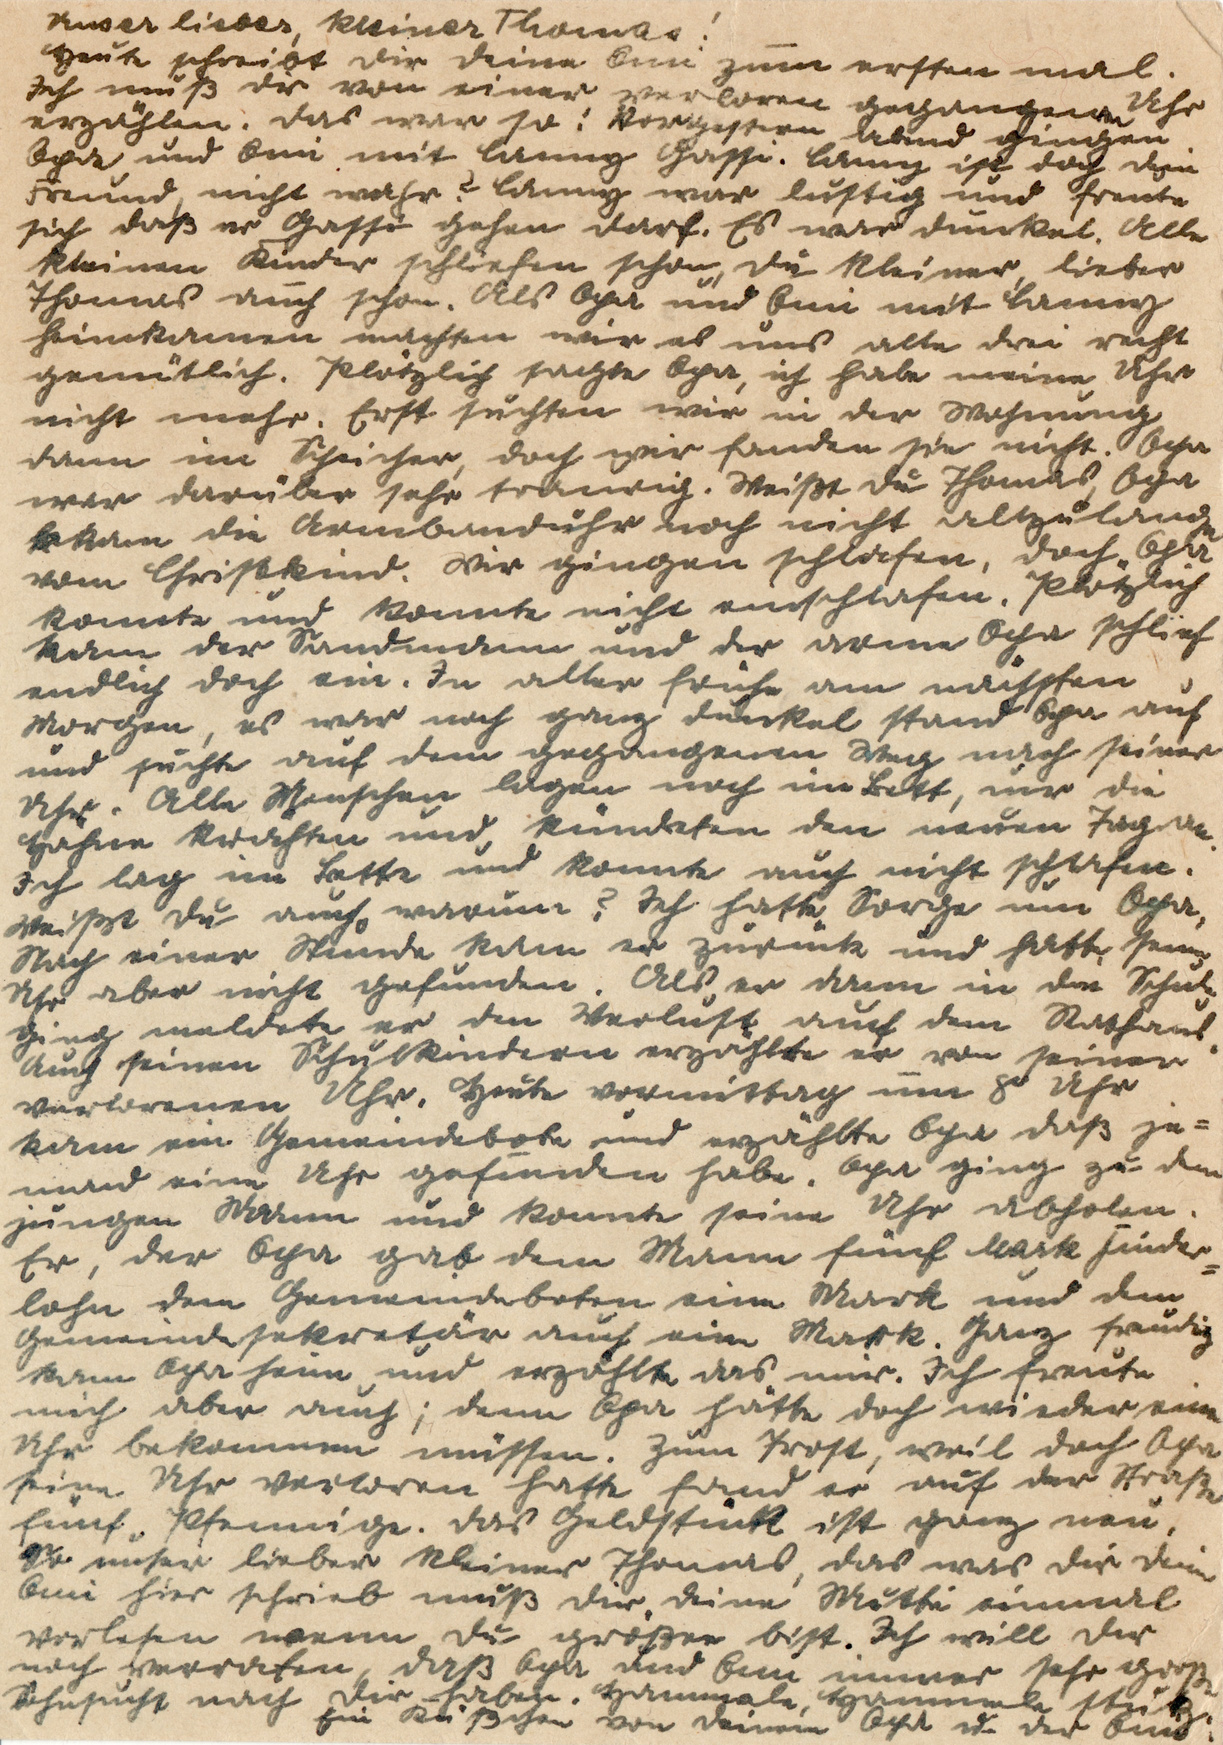 Unser lieber, kleiner Thomas!
Heute schreibt dir deine Omi zum ersten mal.
Ich muß dir von einer verloren gegangenen Uhr
erzählen. Das war so! Vorgestern abend gingen
Opa und Omi mit Lanny Gassi. Lanny ist doch dein
Freund, nicht wahr? Lanny war lustig und freute
sich daß er Gassi gehen darf. Es war dunkel. Alle
kleinen Kinder schliefen schon, du kleiner, lieber
Thomas auch schon. Als Opa und Omi mit Lanny
heimkamen machten wir es uns alle drei recht
gemütlich. Plötzlich sagte Opa, ich habe meine Uhr
nicht mehr. Erst suchten wir in der Wohnung
dann im Speicher, doch wir fanden sie nicht. Opa
war darüber sehr traurig. Weißt du Thomas, Opa
bekam die Armbanduhr noch nicht allzulange
vom Christkind. Wir gingen schlafen, doch Opa
konnte und konnte nicht einschlafen. Plötzlich
kam der Sandmann und der arme Opa schlief
endlich doch ein. In aller frühe am nächsten
Morgen, es war noch ganz dunkel stand Opa auf
und suchte auf dem gegangenen Weg nach seiner
Uhr. Alle Menschen lagen noch im Bett, nur die
Hähne krähten und kündeten den neuen Tag an.
Ich lag im Bette und konnte auch nicht schlafen.
Weißt du auch warum? Ich hatte Sorge um Opa.
Nach einer Stunde kam er zurück und hatte seine
Uhr aber nicht gefunden. Als er dann in die Schule
ging meldete er den Verlust auch dem Rathaus.
Auch seinen Schulkindern erzählte er von seiner
verlorenen Uhr. Heute vormittag um 8⁰ Uhr
kam ein Gemeindebote und erzählte Opa daß je=
mand eine Uhr gefunden habe. Opa ging zu dem
jungen Mann und konnte seine Uhr abholen.
Er, der Opa gab dem Mann fünf Mark Finder=
lohn dem Gemeindeboten eine Mark und dem
Gemeindesekretär auch eine Mark. Ganz freudig
kam Opa heim und erzählte das mir. Ich freute
mich aber auch; denn Opa hätte doch wieder eine
Uhr bekommen müssen. Zum Trost, weil doch Opa
seine Uhr verloren hatte fand er auf der Straße
fünf Pfennige. Das Geldstück ist ganz neu.
So unser lieber kleiner Thomas, das was dir dein
Omi hier schrieb muß dir deine Mutti einmal
vorlesen wenn du größer bist. Ich will dir
noch verraten, daß Opa und Omi immer sehr große
Sehnsucht nach dir haben. Hammele, Hammele
Ein Küßchen von deinem Opa u. der Omi.